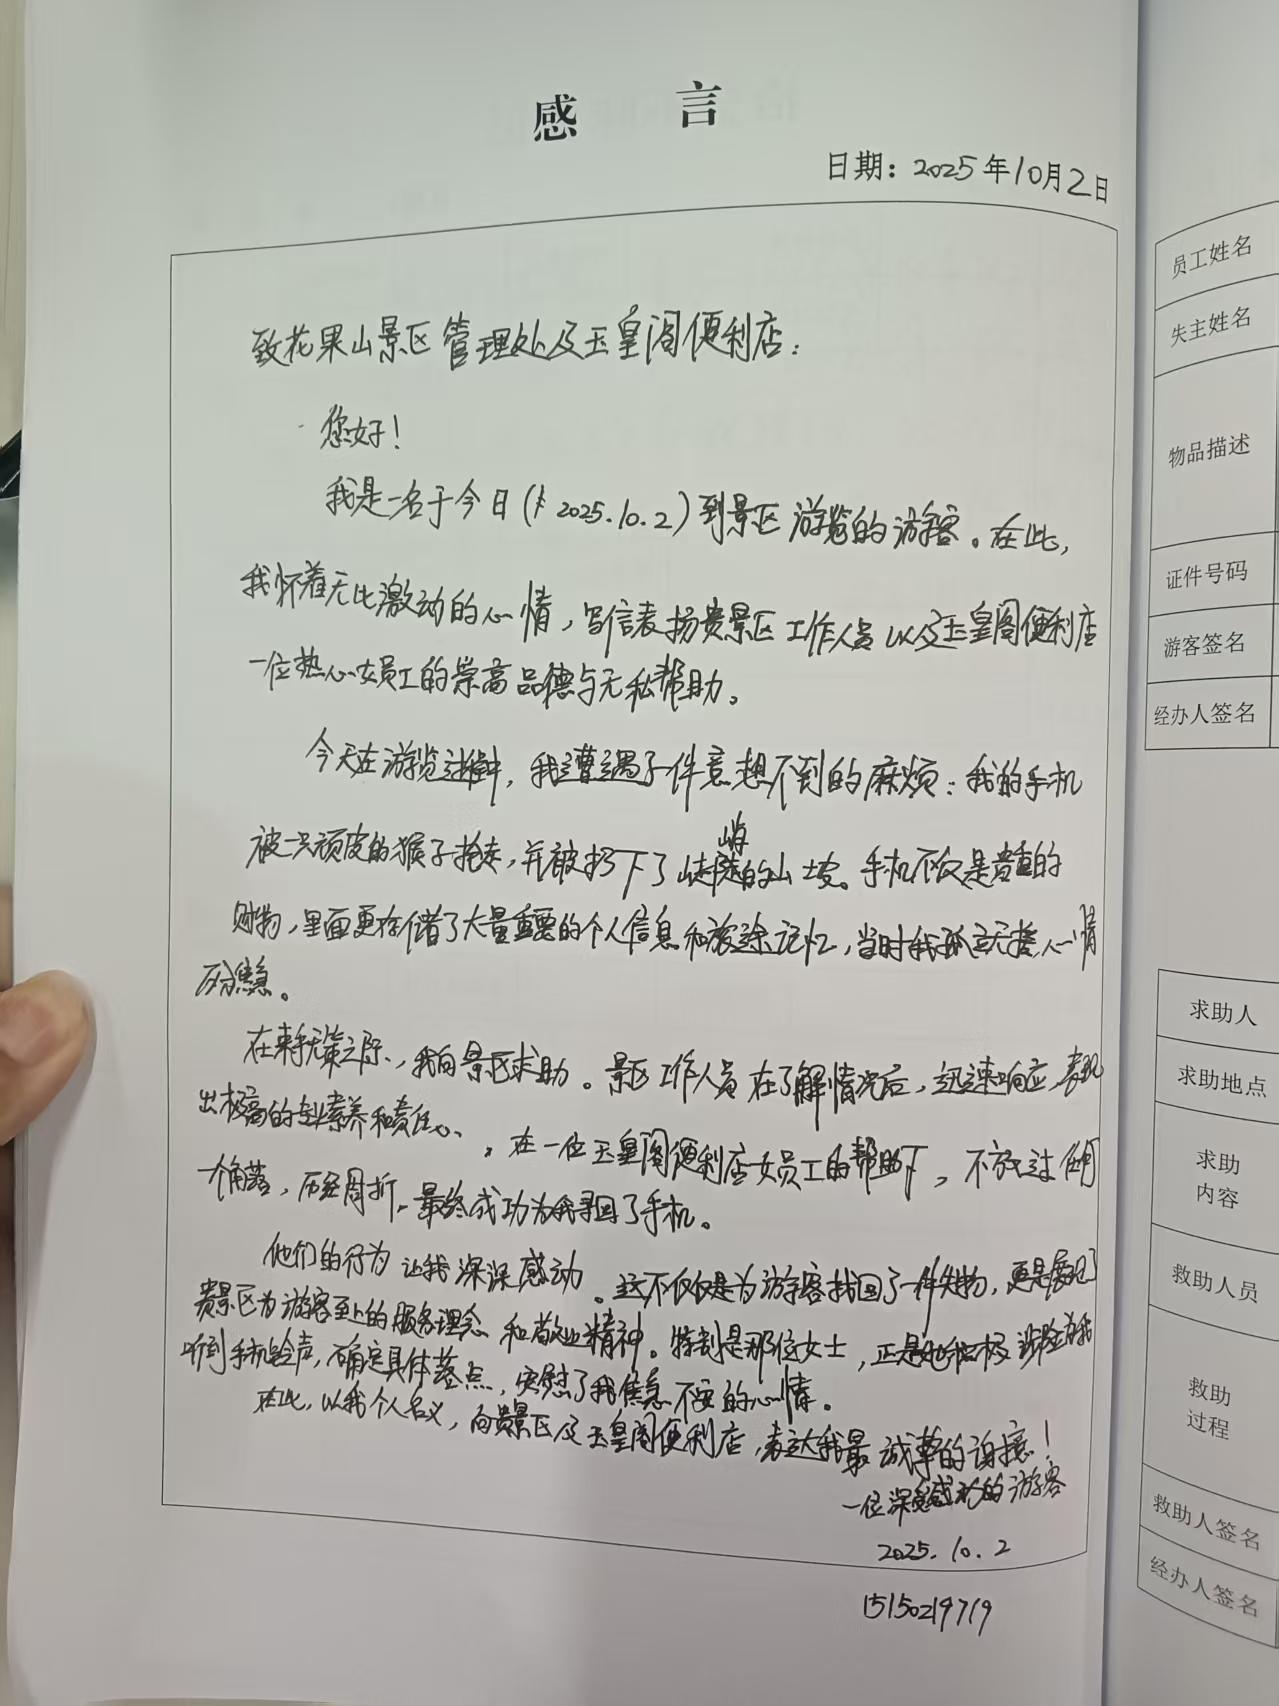 感 言
日期：2025年10月2日
致花果山景区管理处及玉皇阁便利店：
您好！
我是一名于今日（2025.10.2）到景区游览的游客。在此，
我怀着无比激动的心情，写信表扬贵景区工作人员以及玉皇阁便利店
一位热心女员工的崇高品德与无私帮助。
今天在游览过程中，我遭遇了件意想不到的麻烦：我的手机
被一只顽皮的猴子抢走，并被扔下了陡峭的山坡。手机不仅是贵重的
财物，里面更存储了大量重要的个人信息和旅途记忆，当时我孤立无援，心情
万分焦急。
在束手无策之际，我向景区求助。景区工作人员在了解情况后，迅速响应，表现
出极高的专业素养和责任心。在一位玉皇阁便利店女员工的帮助下，不放过任何
一个角落，历经周折，最终成功为我寻回了手机。
他们的行为让我深深感动。这不仅仅是为游客找回了一件失物，更是展现了
贵景区为游客至上的服务理念和敬业精神。特别是那位女士，正是她积极
听到手机铃声，确定具体落点，安慰了我焦急不安的心情。
在此，以我个人名义，向贵景区及玉皇阁便利店，表达我最诚挚的谢意！
一位深感动的游客
2025.10.2
15150219719
员工姓名
失主姓名
物品描述
证件号码
游客签名
经办人签名
求助人
求助地点
求助
内容
救助人员
救助
过程
救助人签名
经办人签名